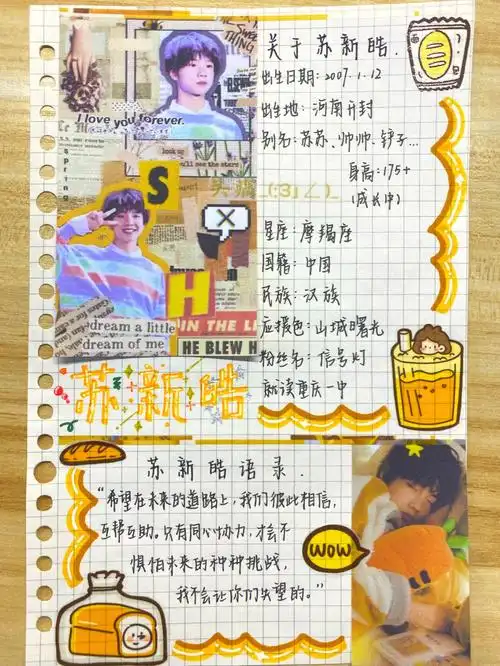 关于苏新皓.
出生日期：2007.1.12
出生地：河南开封
别名：苏苏、帅帅、铲子…
身高：175+
(成长中)
星座：摩羯座
国籍：中国
民族：汉族
应援色：山城曙光
粉丝名：信号灯
就读重庆一中
THING
I love you forever.
look up
call see the stars
spring
S
H
dream a little
dream of me
IN THE LI
HE BLEW H
苏新皓
苏新皓语录.
“希望在未来的道路上，我们彼此相信，
互帮互助。只有同心协力，才会不
惧怕未来的种种挑战，
我不会让你们失望的。”
WOW